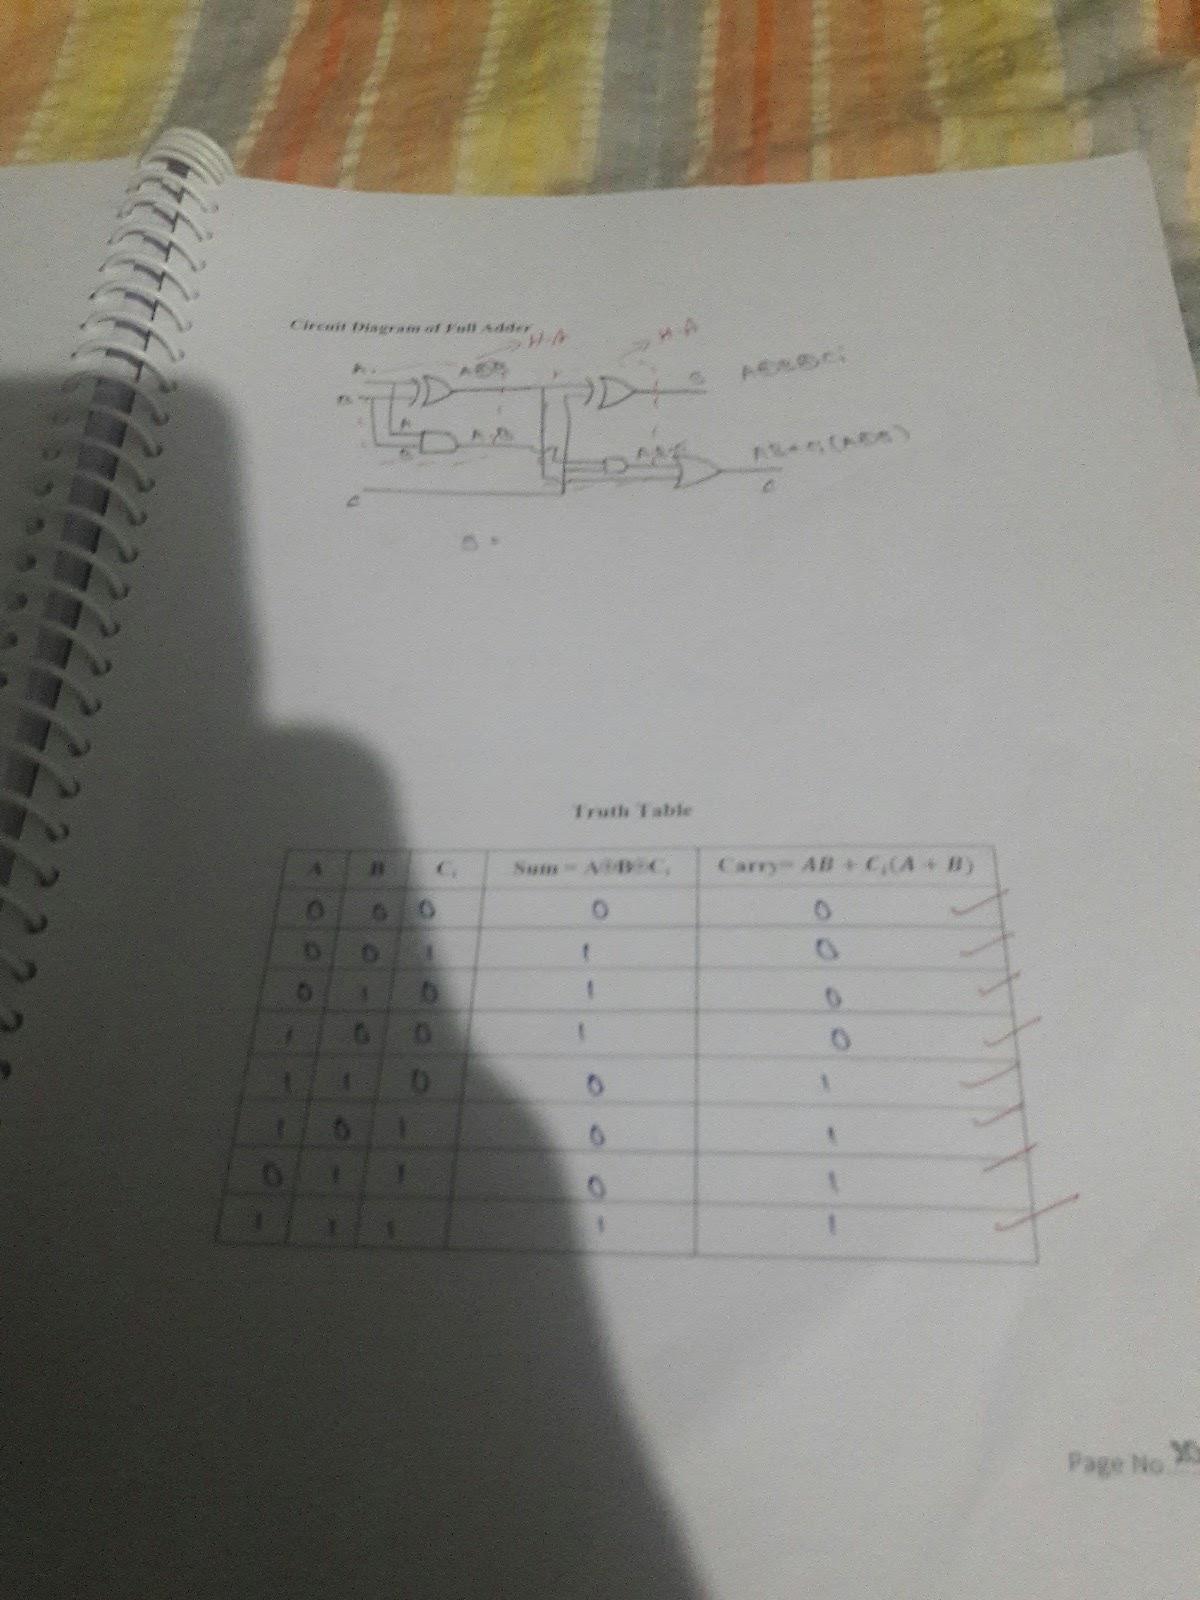 Circuit Diagram of Full Adder
H-A H-A
A A⊕B S A⊕B⊕Ci
B
A
B A.B AB+Ci(A⊕B)
C C
S =
Truth Table
A B Ci Sum = A⊕B⊕Ci Carry= AB + Ci(A + B)
0 0 0 0 0
0 0 1 1 0
0 1 0 1 0
1 0 0 1 0
1 1 0 0 1
1 0 1 0 1
0 1 1 0 1
1 1 1 1 1
Page No